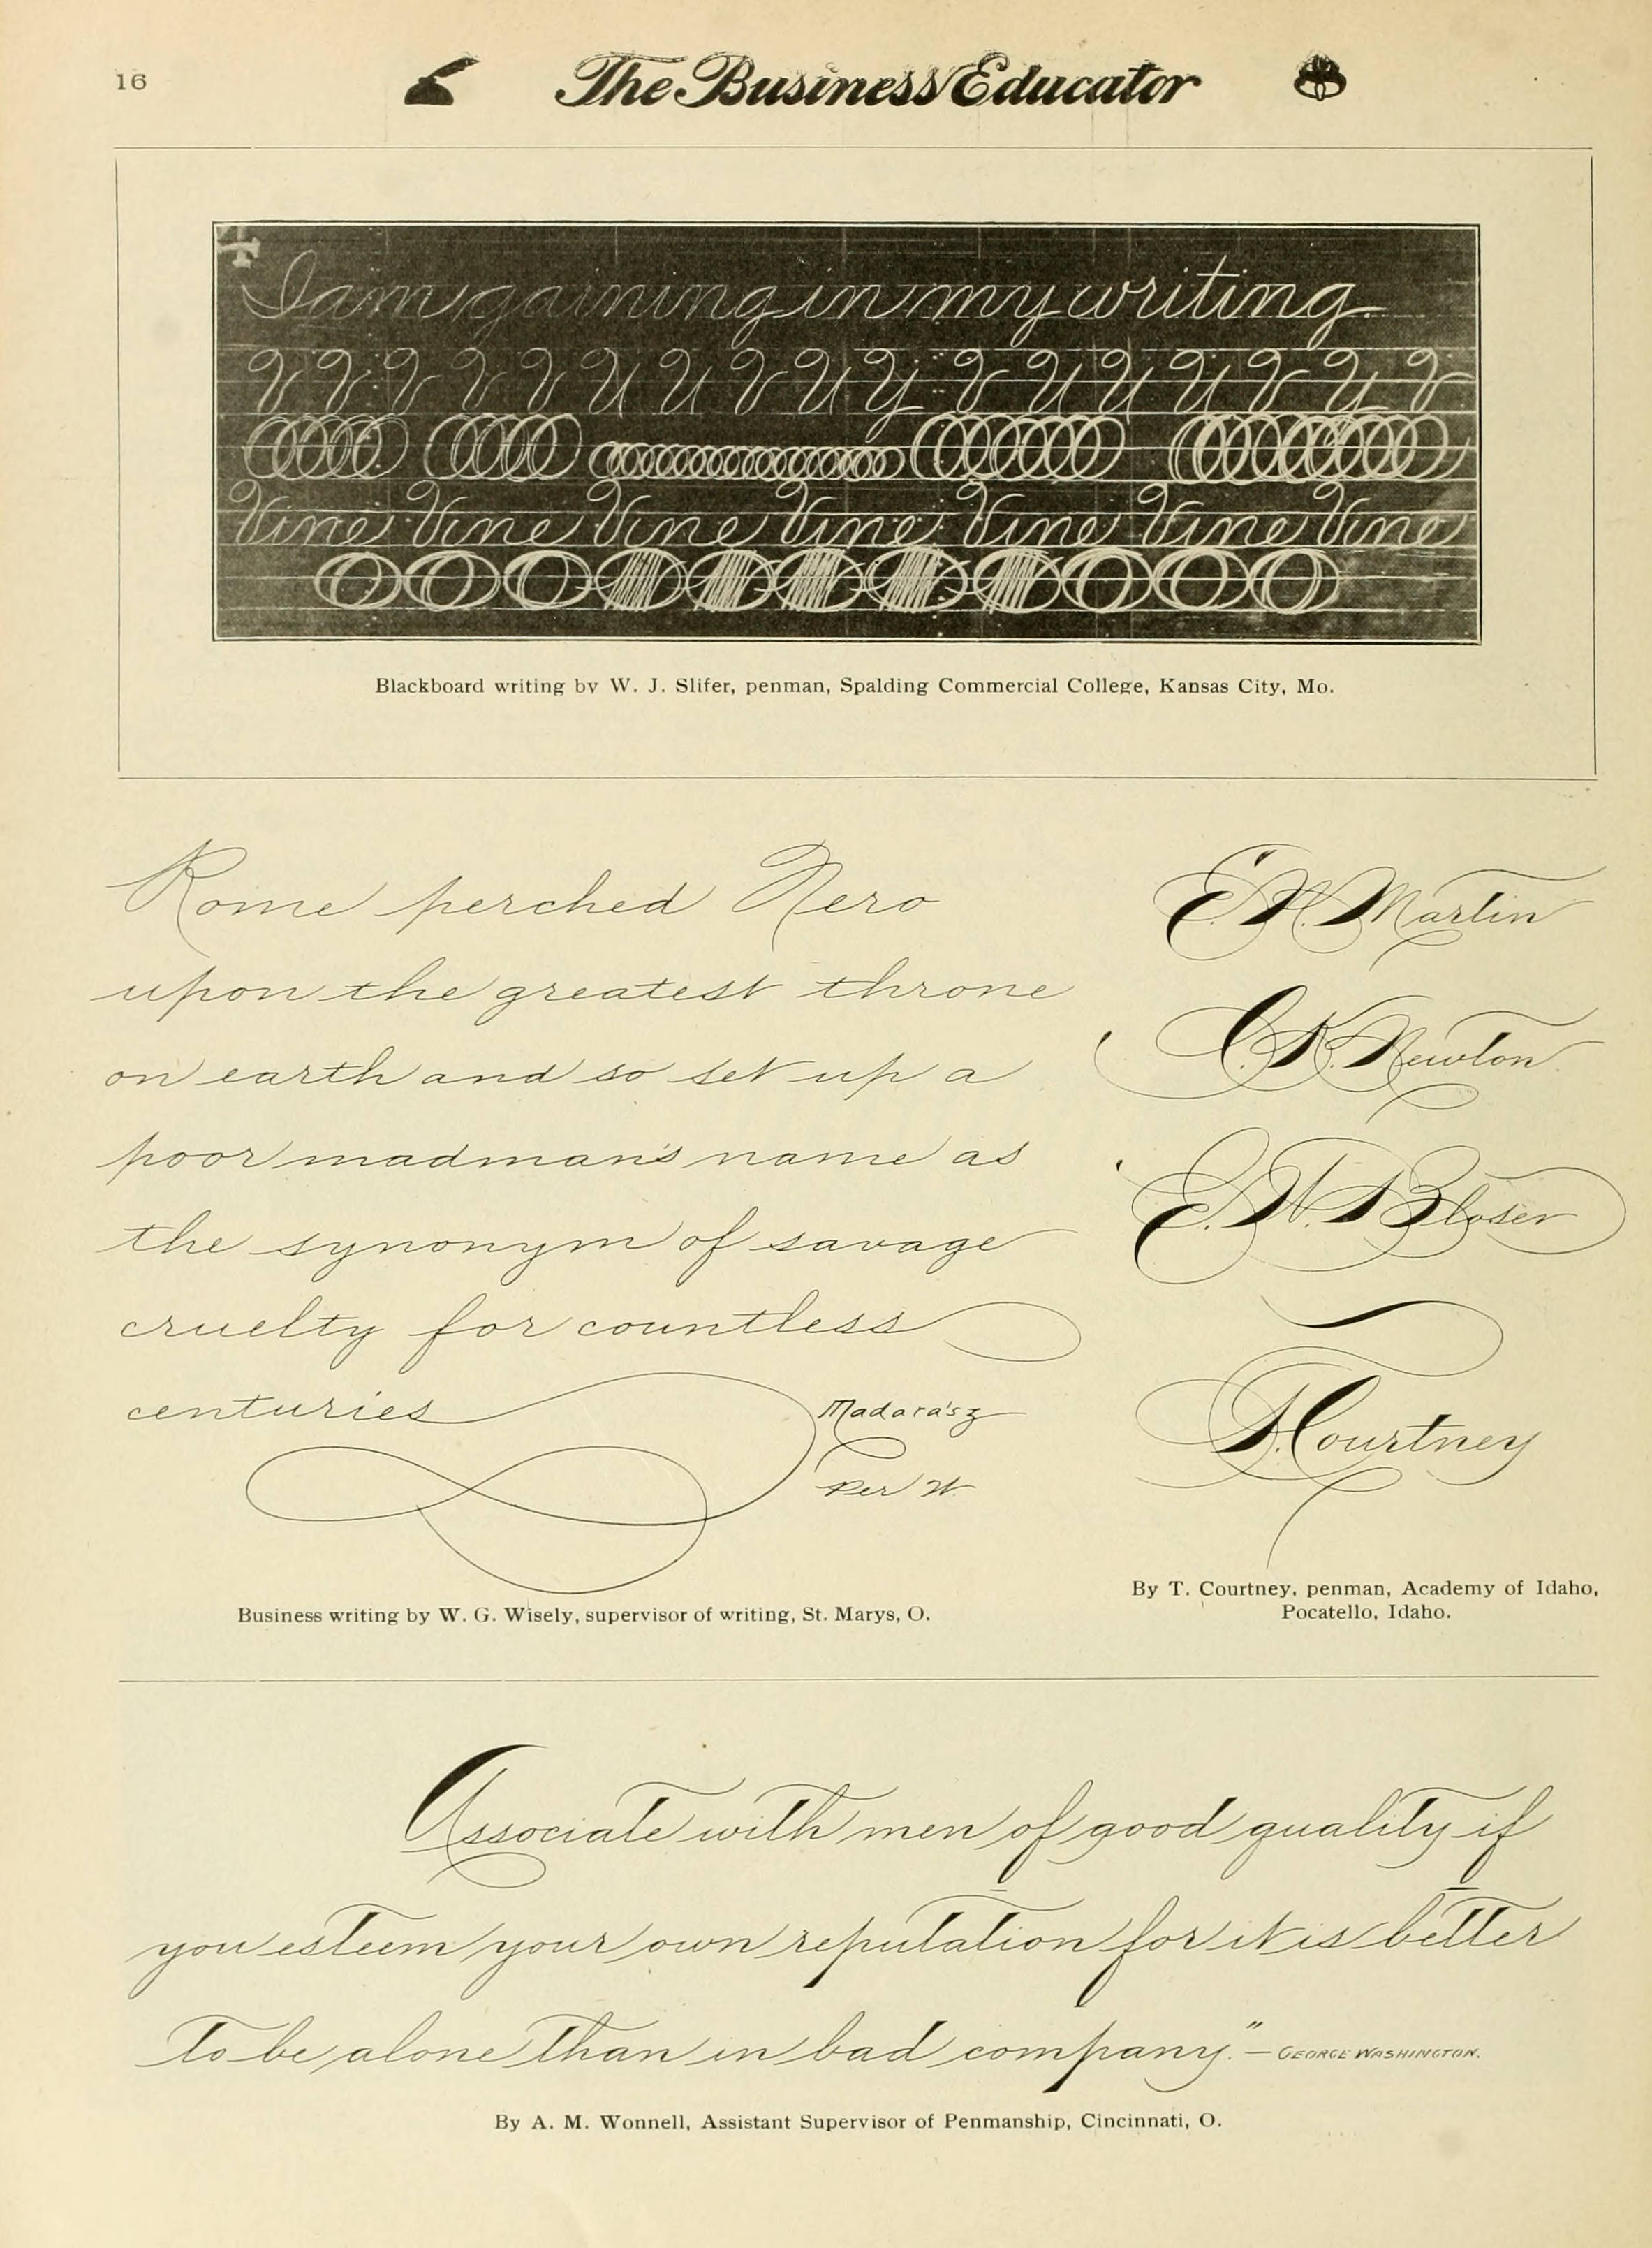 16
The Business Educator
I am gaining in my writing.
V V V V V U U V U Y V U U U V Y V
Vine Vine Vine Vine Vine Vine Vine
Blackboard writing by W. J. Slifer, penman, Spalding Commercial College, Kansas City, Mo.
Rome perched Nero
upon the greatest throne
on earth and so set up a
poor madman's name as
the synonym of savage
cruelty for countless
centuries
Madarasz
Per W.
Business writing by W. G. Wisely, supervisor of writing, St. Marys, O.
E. H. Martin
C. K. Newton
E. W. Bloser
T. Courtney
By T. Courtney, penman, Academy of Idaho,
Pocatello, Idaho.
Associate with men of good quality if
you esteem your own reputation for it is better
to be alone than in bad company." — GEORGE WASHINGTON.
By A. M. Wonnell, Assistant Supervisor of Penmanship, Cincinnati, O.